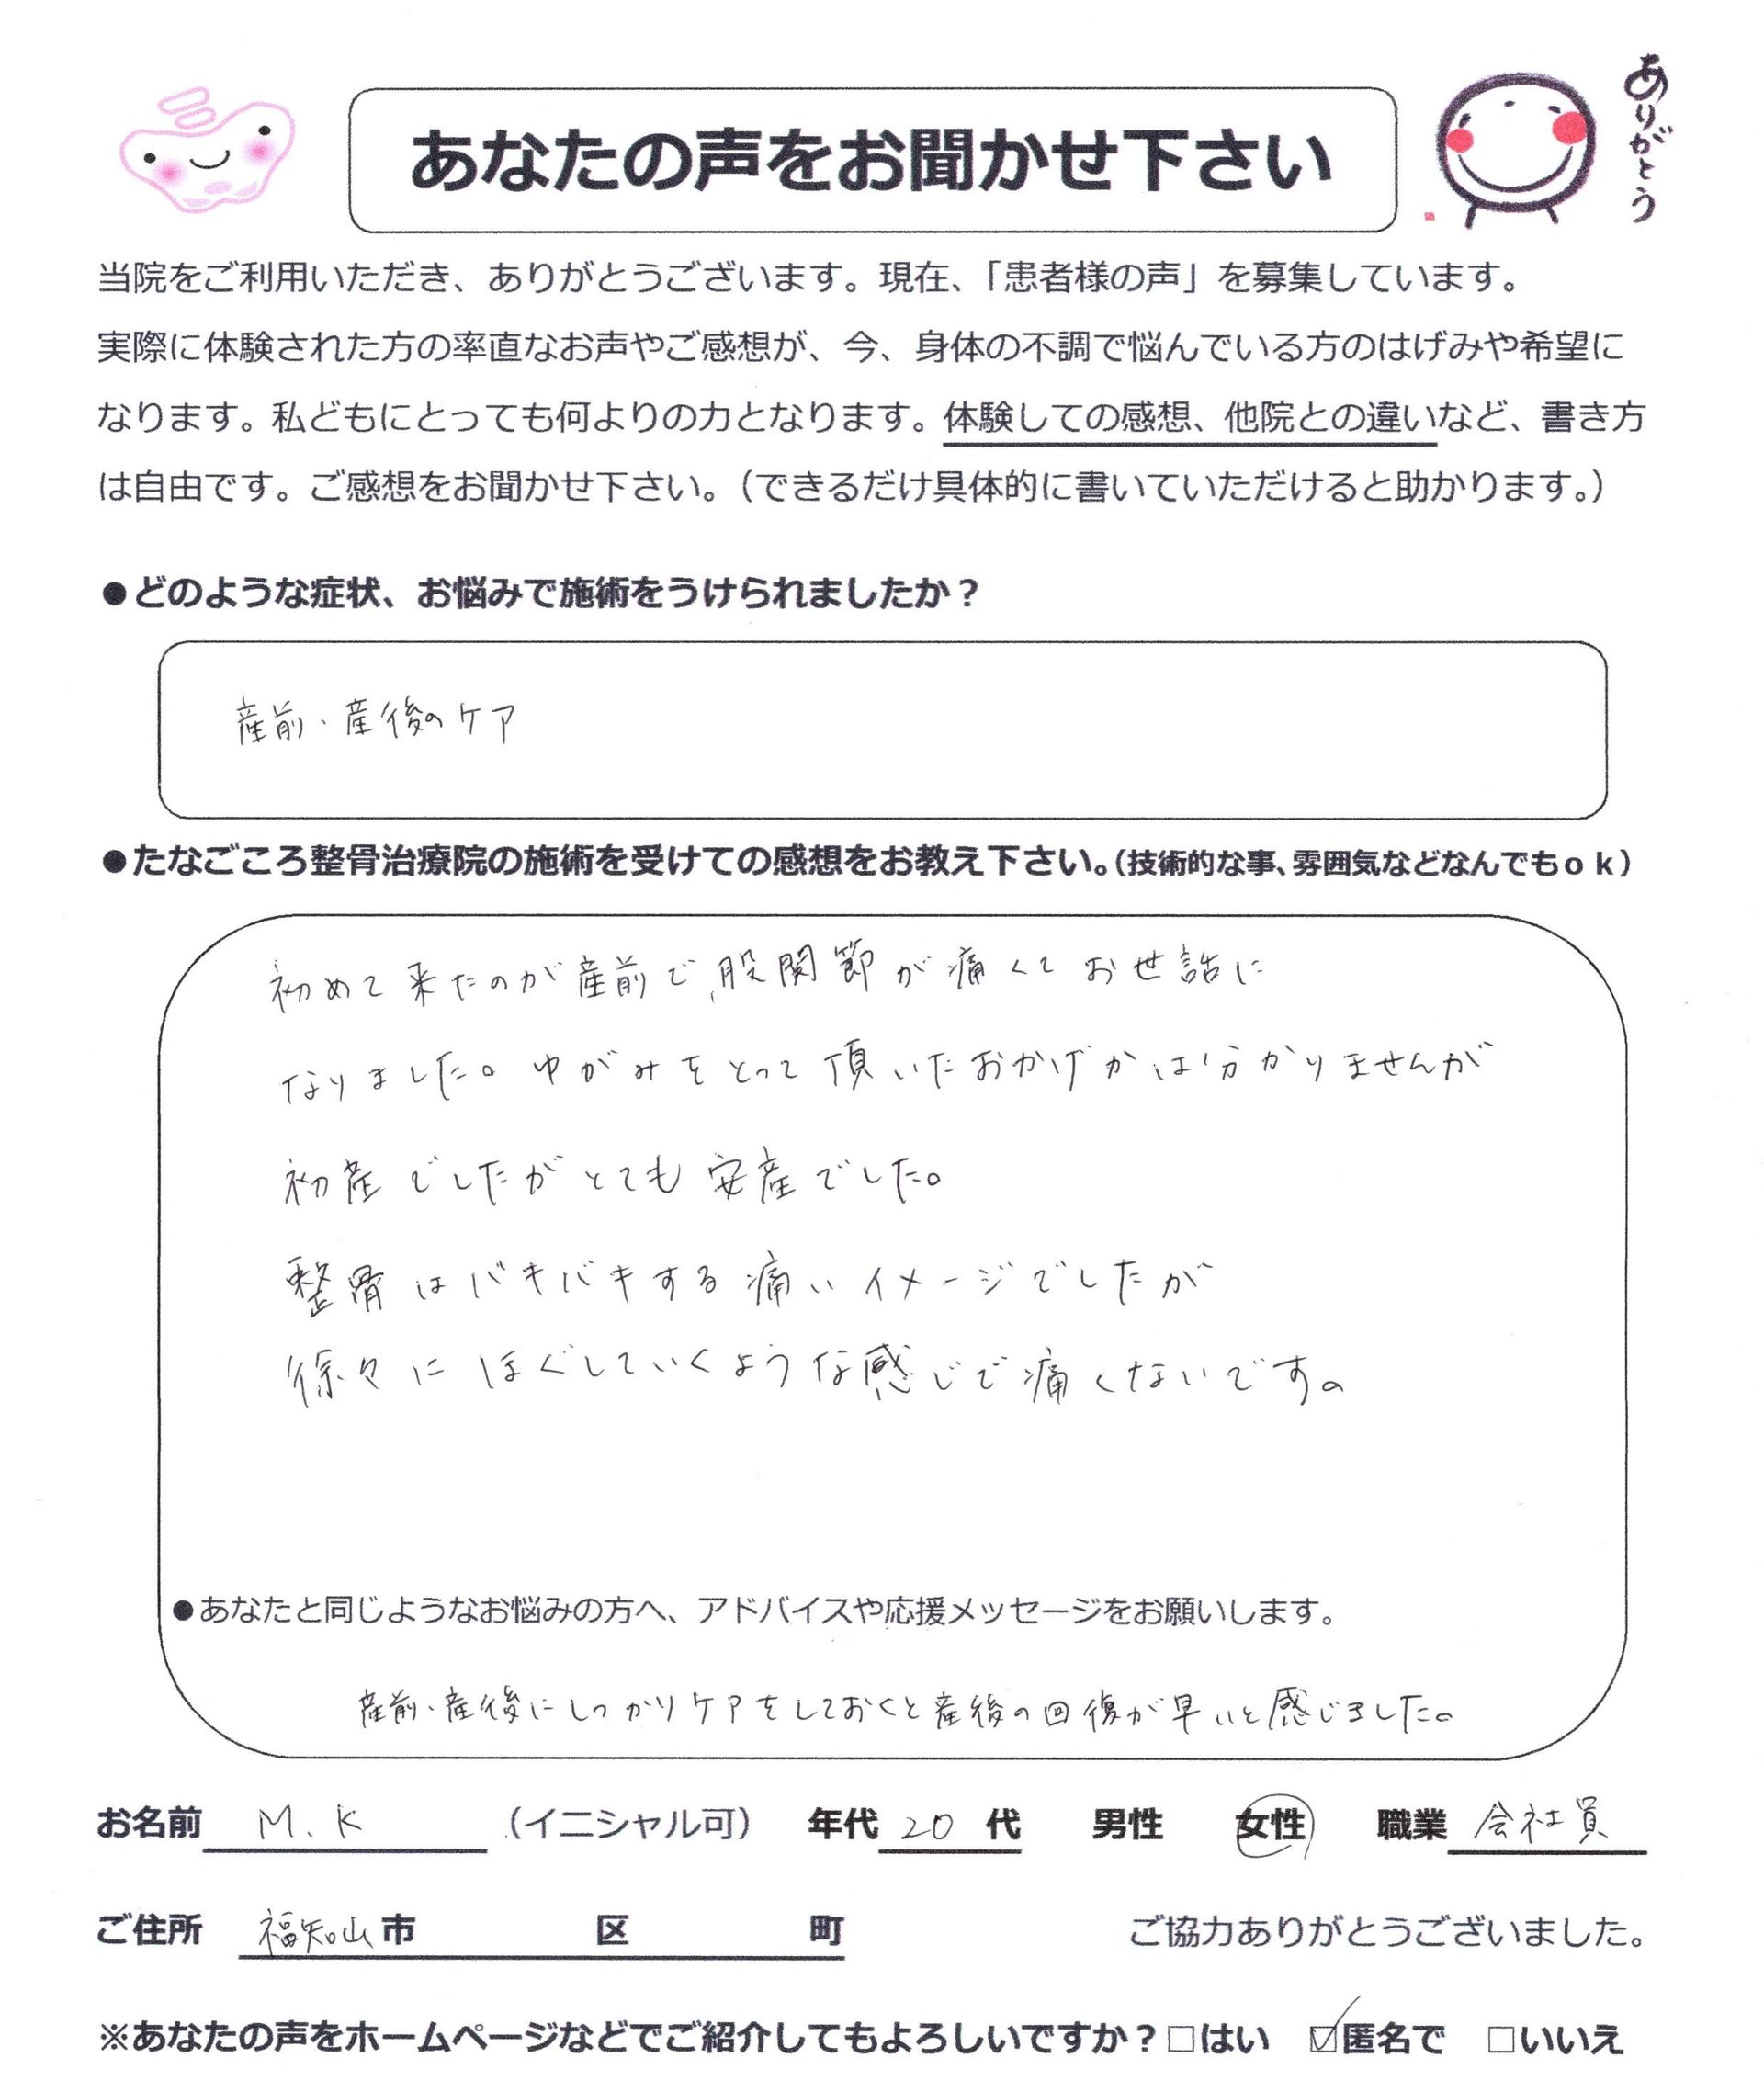 あなたの声をお聞かせ下さい
ありがとう
当院をご利用いただき、ありがとうございます。現在、「患者様の声」を募集しています。
実際に体験された方の率直なお声やご感想が、今、身体の不調で悩んでいる方のはげみや希望に
なります。私どもにとっても何よりの力となります。体験しての感想、他院との違いなど、書き方
は自由です。ご感想をお聞かせ下さい。（できるだけ具体的に書いていただけると助かります。）
●どのような症状、お悩みで施術をうけられましたか？
産前・産後のケア
●たなごころ整骨治療院の施術を受けての感想をお教え下さい。（技術的な事、雰囲気などなんでもｏｋ）
初めて来たのが産前で、股関節が痛くてお世話に
なりました。ゆがみをとって頂いたおかげかは分かりませんが
初産でしたがとても安産でした。
整骨はバキバキする痛いイメージでしたが
徐々にほぐしていくような感じで痛くないです。
●あなたと同じようなお悩みの方へ、アドバイスや応援メッセージをお願いします。
産前・産後にしっかりケアをしておくと産後の回復が早いと感じました。
お名前 M.K （イニシャル可） 年代 20 代 男性 女性 職業 会社員
ご住所 福知山市 区 町 ご協力ありがとうございました。
※あなたの声をホームページなどでご紹介してもよろしいですか？□はい ☑匿名で □いいえ